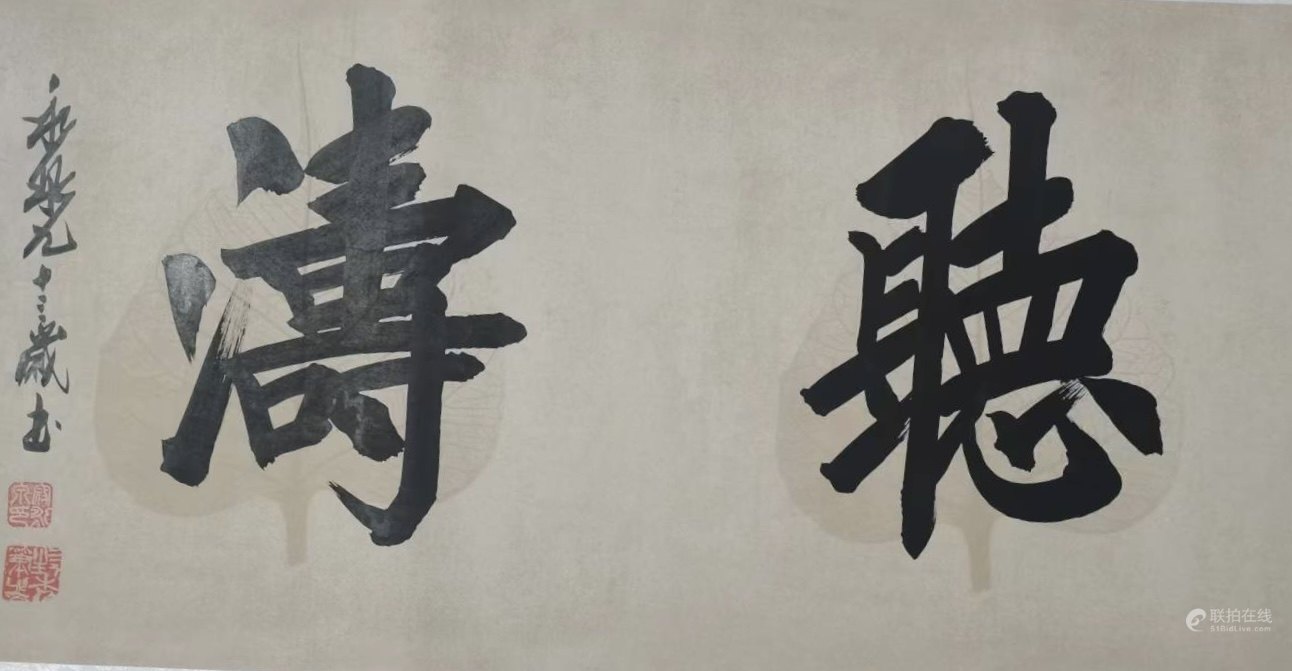 聽濤
九十三歲书
联拍在线
51BidLive.com